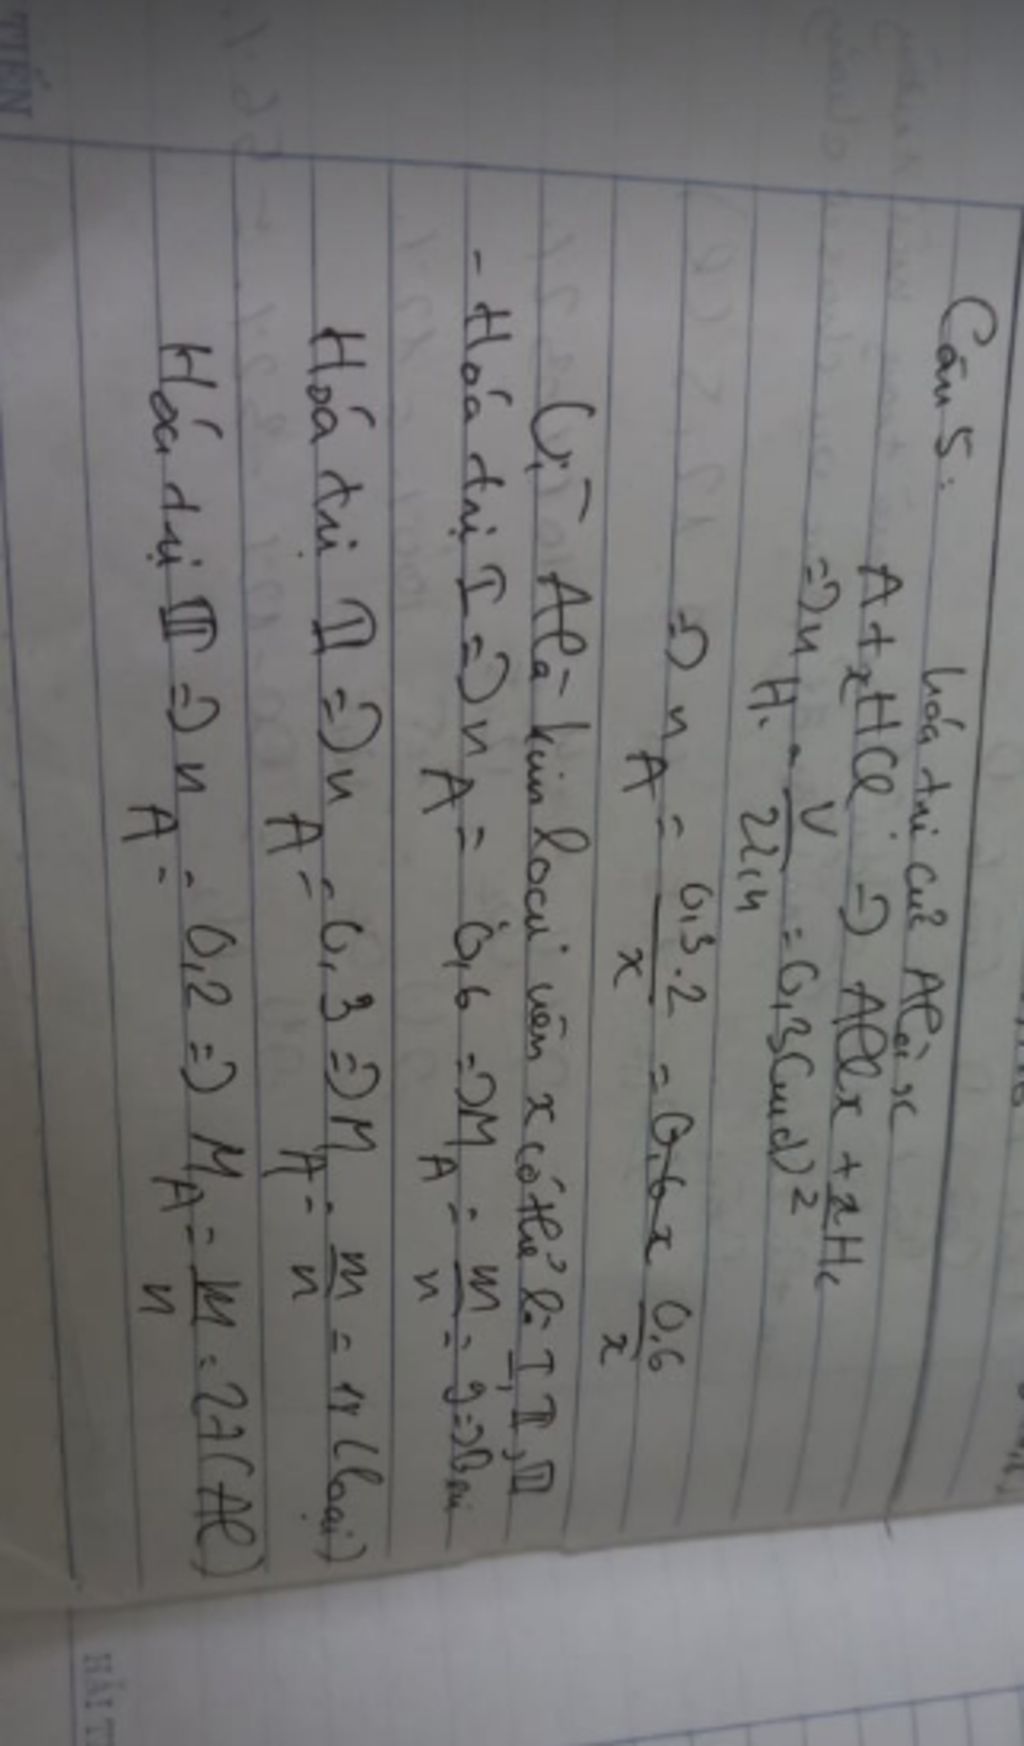 Câu 5: hóa trị củ A là x
A + xHCl => AClx + x/2 H2
=> nH2 = V/22,4 = 0,3(mol)
=> nA = 0,3.2/x = 0,6x 0,6/x
(vì A là kim loại nên x có thể là I, II, III
- Hoá trị I => nA = 0,6 => MA = m/n = 9 => loại
Hoá trị II => nA = 0,3 => MA = m/n = 18 (loại)
Hoá trị III => nA = 0,2 => MA = m/n = 27 (Al)
TIẾN
HẢI T